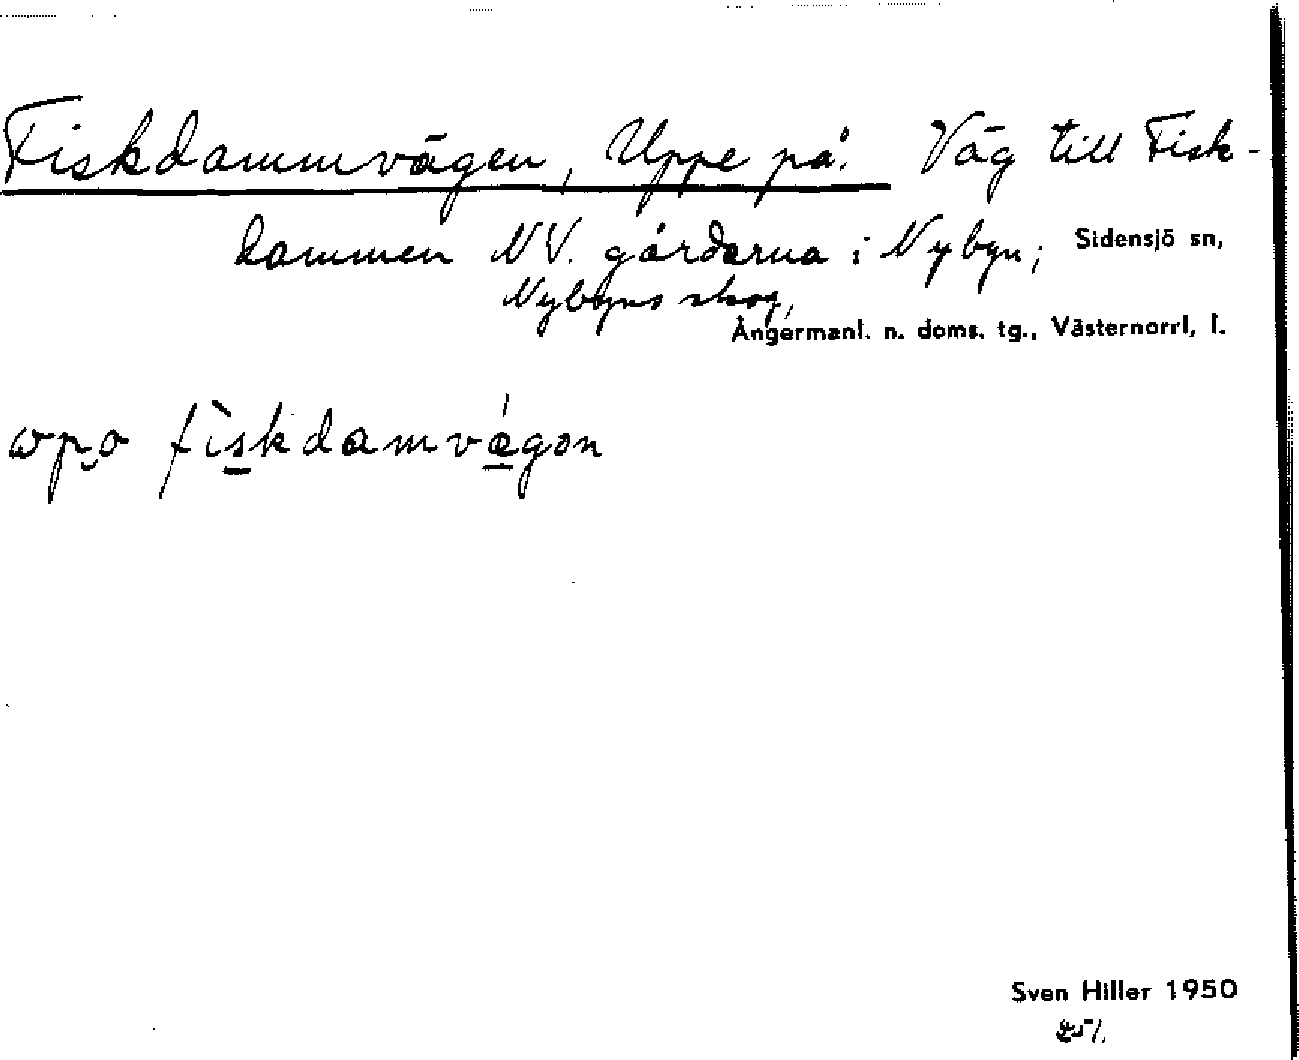 Fiskdammvägen, Uppe på. Väg till Fisk-
dammen NV. gårdarna i Nybyn; Sidensjö sn,
Nybyns skog,
Ångermanl. n. doms. tg., Västernorrl, l.
wpo fiskdamvägen
Sven Hiller 1950